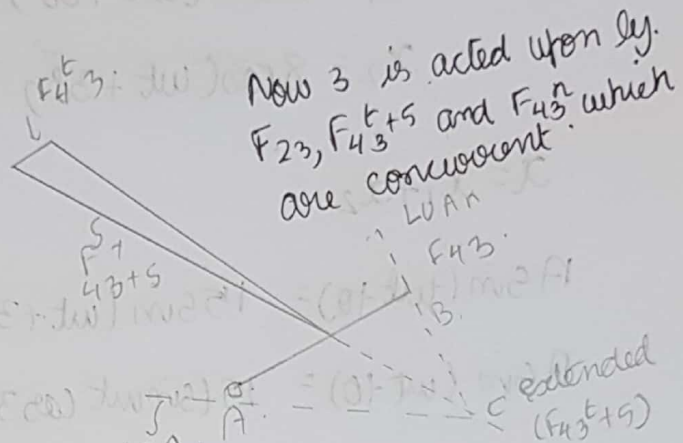 F₄ᵗ3
Now 3 is acted upon by.
F₂₃, F₄₃ᵗ+S and F₄₃ⁿ which
are concurrent.
LOA
F43.
S
F
43+S
B.
A
C extended
(F₄₃ᵗ+S)